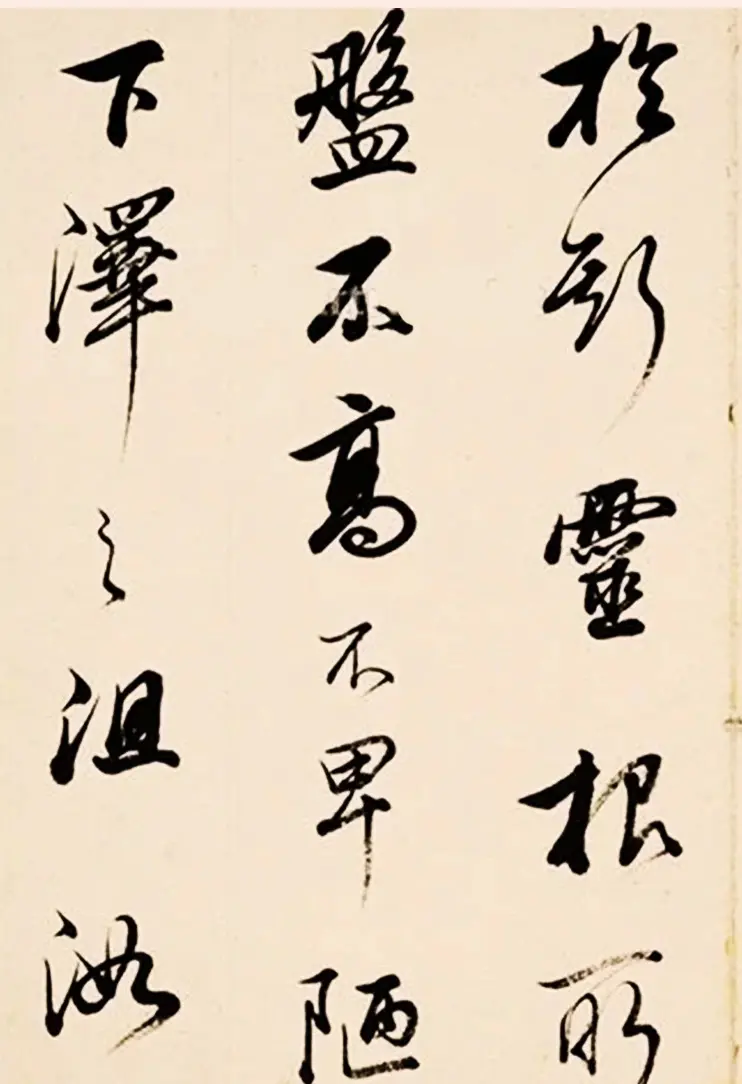 於斯靈根所
盤不高不卑陋
下澤之沮洳